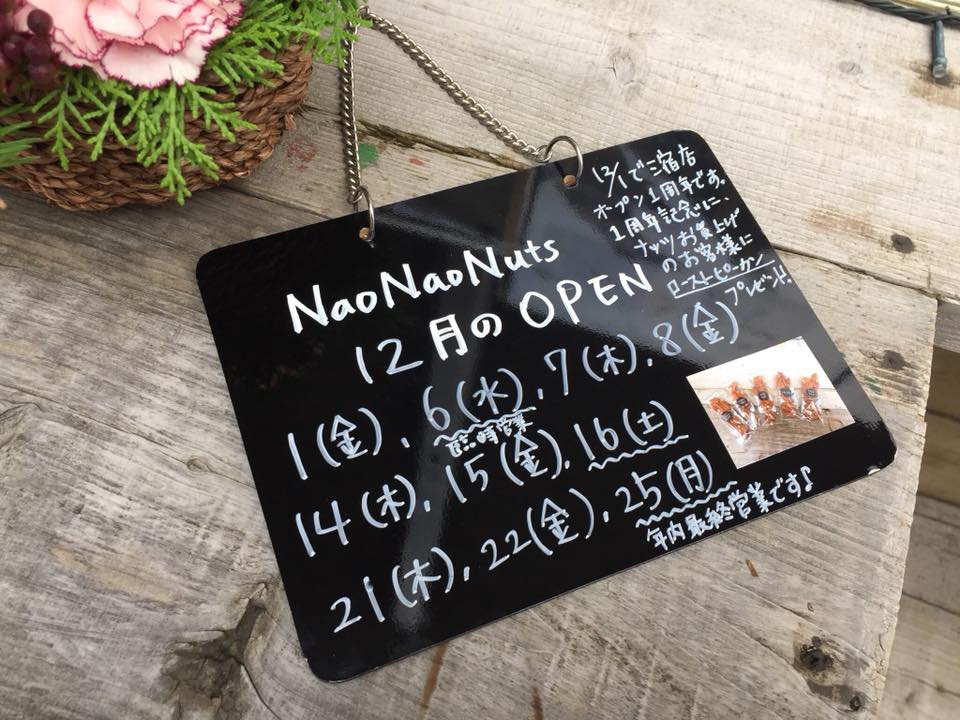 12/1で三宿店
オープン1周年です。
1周年記念に、
ナッツお買上げ
のお客様に
ローストピーカン
プレゼント!
NaoNaoNuts
12月のOPEN
1(金)、6(水)、7(木)、8(金)
臨時営業
14(木)、15(金)、16(土)
21(木)、22(金)、25(月)
年内最終営業です♪